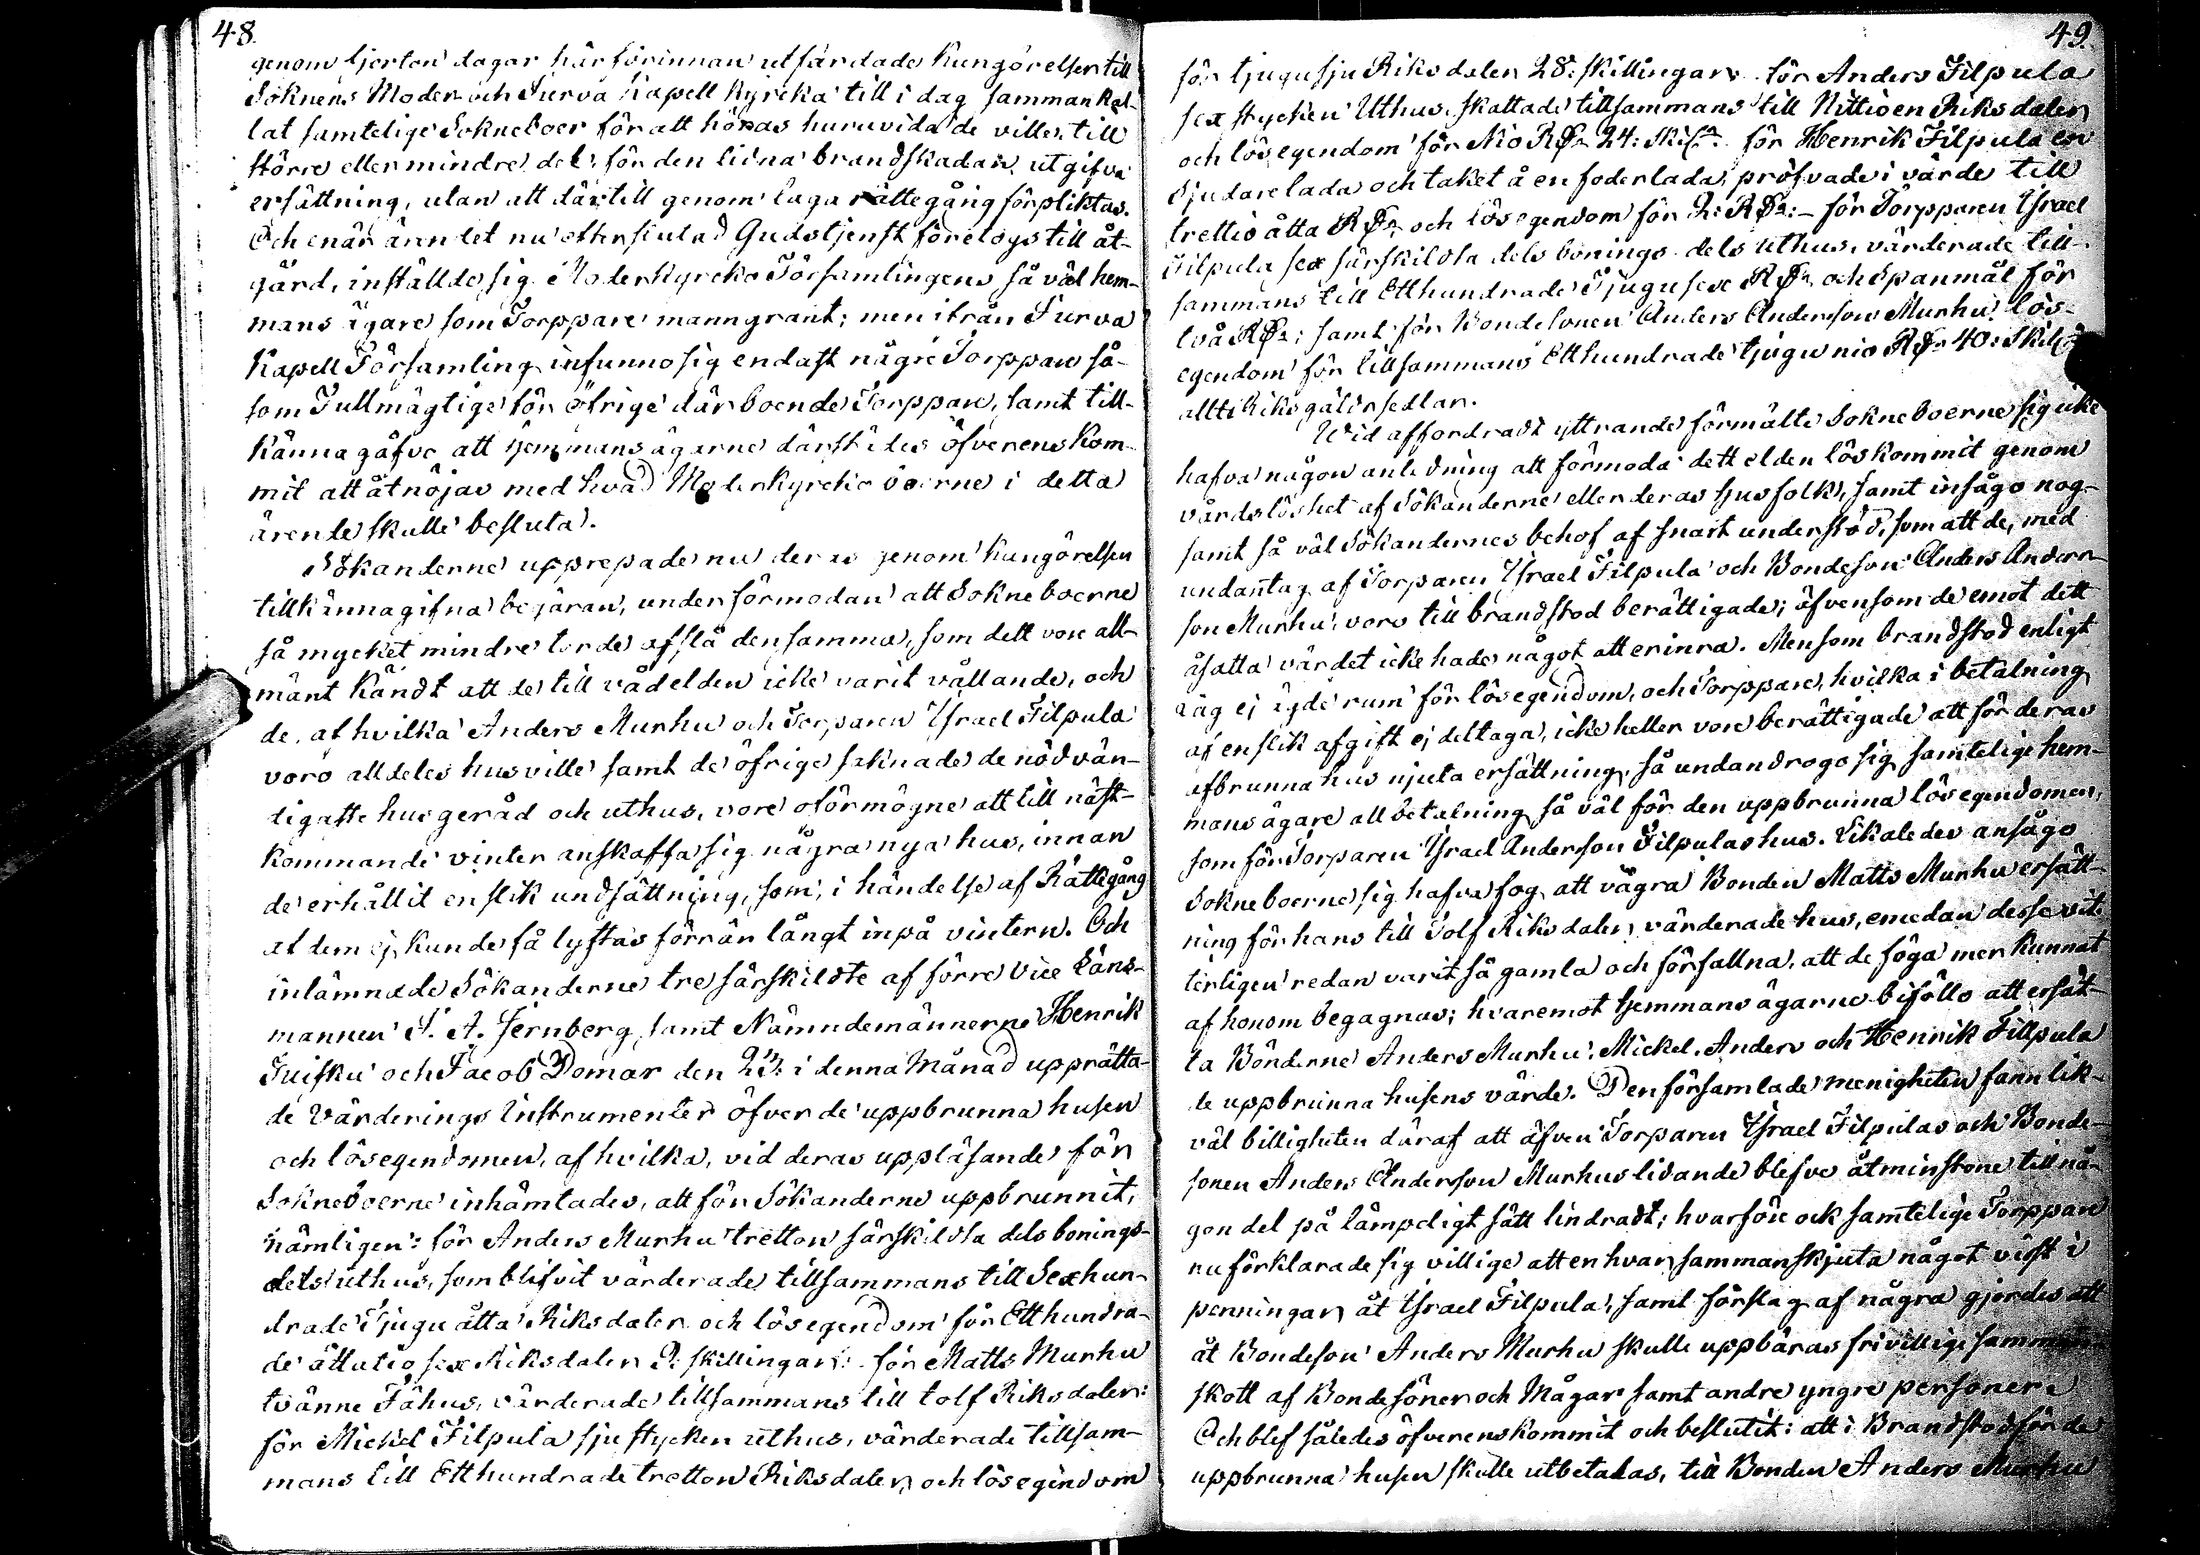 48.
genom fjorton dagar här förinnan utfärdade kungörelser till
Soknens Moder och Jurva Kapell Kyrcka till i dag samman kal-
lat samtelige Sokneboer för att höras huruvida de ville, till
större eller mindre del, för den lidna brandskadan utgifva
ersättning, utan att därtill genom laga rättegång förpliktas.
Och enär ärendet nu efter slutad Gudstjenst företogs till åt-
gärd, inställde sig Moderkyrcko Församlingens så väl hem-
mans ägare som Torppare manngrant; men ifrån Jurva
Kapell Församling infunno sig endast någre Torppare så-
som Fullmägtige för öfrige där boende Torppare, samt till-
känna gåfvo att hemmans ägarne därstädes öfverenskom-
mit att åtnöjas med hvad Moderkyrcko boerne i detta
ärende skulle besluta.
Sökanderne upprepade nu deras genom kungörelsen
tillkännagifna begäran, under förmodan att Sokneboerne
så mycket mindre torde afslå densamma, som dett vore all-
mänt kändt att de till vådelden icke varit vållande, och
de, af hvilka Anders Murhu och Torparen Israel Filpula
voro alldeles husville samt de öfrige saknade de nödvän-
digaste husgeråd och uthus, vore oförmögne att till näst-
kommande vinter anskaffa sig några nya hus, innan
de erhållit en slik undsättning, som, i händelse af Rättegång
af dem ej kunde få lyftas förrän långt inpå vintern. Och
inlämnade Sökanderne tre särskildte af förre Vice Läns-
mannen J. A. Jernberg, samt Nämndemännerne Henrik
Tuisku och Jacob Domar den 23: i denna Månad upprätta-
de Värderings Instrumenter öfver de uppbrunna husen
och lösegendomen, af hvilka, vid deras uppläsande för
Sokneboerne inhämtades, att för Sökanderne uppbrunnit,
nämligen: för Anders Murhu tretton särskildta dels bonings-
dels uthus, som blifvit värderade tillsammans till Sexhun-
drade Tjugu åtta Riksdaler och lösegendom för Etthundra-
de åttatio sex Riksdaler 2: skillingar: för Matts Murhu
tvänne Fähus, värderade tillsammans till tolf Riksdaler:
för Mickel Filpula sju stycken uthus, värderade tillsam-
mans till Etthundrade tretton Riksdaler, och lösegendom
49.
för tjugu sju Riksdaler 28: skillingar: för Anders Filpula
sex stycken Uthus, skattade tillsammans till Nittioen Riksdaler
och lösegendom för Nio RD:r 24: skil: för Henrik Filpula en
Sjudarelada och taket å en foderlada, pröfvade i värde till
trettio åtta RD:r och lösegendom för 2: RD:r:- för Torpparen Israel
Filpula sex särskildta dels bonings dels uthus, värderade till-
sammans till Etthundrade Tjugu sex RD:r och Spanmål för
två RD:r; samt för Bondesonen Anders Andersson Murhu lös-
egendom för tillsammans Etthundrade tjugu nio RD:r 40: Skil:
allt i Riksgäldssedlar.
Wid affordradt yttrande förmälte Sokneboerne sig icke
hafva någon anledning att förmoda dett elden löskommit genom
vårdslöshet af Sökanderne eller deras husfolk, samt insågo nog-
samt så väl Sökandernes behof af snart understöd, som att de, med
undantag af Torparen Israel Filpula och Bondeson Anders Anders-
son Murhu, voro till brandstod berättigade; äfvensom de emot dett
åsatta värdet icke hade något att erinra. Men som brandstod enligt
Lag ej ägde rum för lösegendom, och Torppare, hvilka i betalning
af en slik afgift ej deltaga, icke heller vore berättigade att för deras
afbrunna hus njuta ersättning, så undandrogo sig samtelige hem-
mans ägare all betalning så väl för den uppbrunna lösegendomen,
som för Torparen Israel Anderson Filpulas hus. Likaledes ansågo
Sokneboerne sig hafva fog att vägra Bonden Matts Murhu ersätt-
ning för hans till Tolf Riksdaler värderade hus, emedan desse vit-
terligen redan varit så gamla och förfallna, att de föga mer kunnat
af honom begagnas; hvaremot hemmans ägarne biföllo att ersät-
ta Bönderne Anders Murhu, Mickel, Anders och Henrik Fillpula
de uppbrunna husens värde. Den församlade menigheten fann lik-
väl billigheten däraf att äfven Torparen Israel Filpulas och Bonde-
sonen Anders Anderson Murhus lidande blefve åtminstone till nå-
gon del på lämpeligt sätt lindradt; hvarföre ock samtelige Torppare
nu förklarade sig villige att en hvar sammanskjuta något visst i
penningar åt Israel Filpula, samt förslag af några gjordes att
åt Bondeson Anders Murhu skulle uppbäras frivillige samman-
skott af Bondesöner och Mågar samt andre yngre personer.
Och blef således öfverenskommit och beslutit: att i Brandstod för de
uppbrunna husen skulle utbetalas, till Bonden Anders Murhu